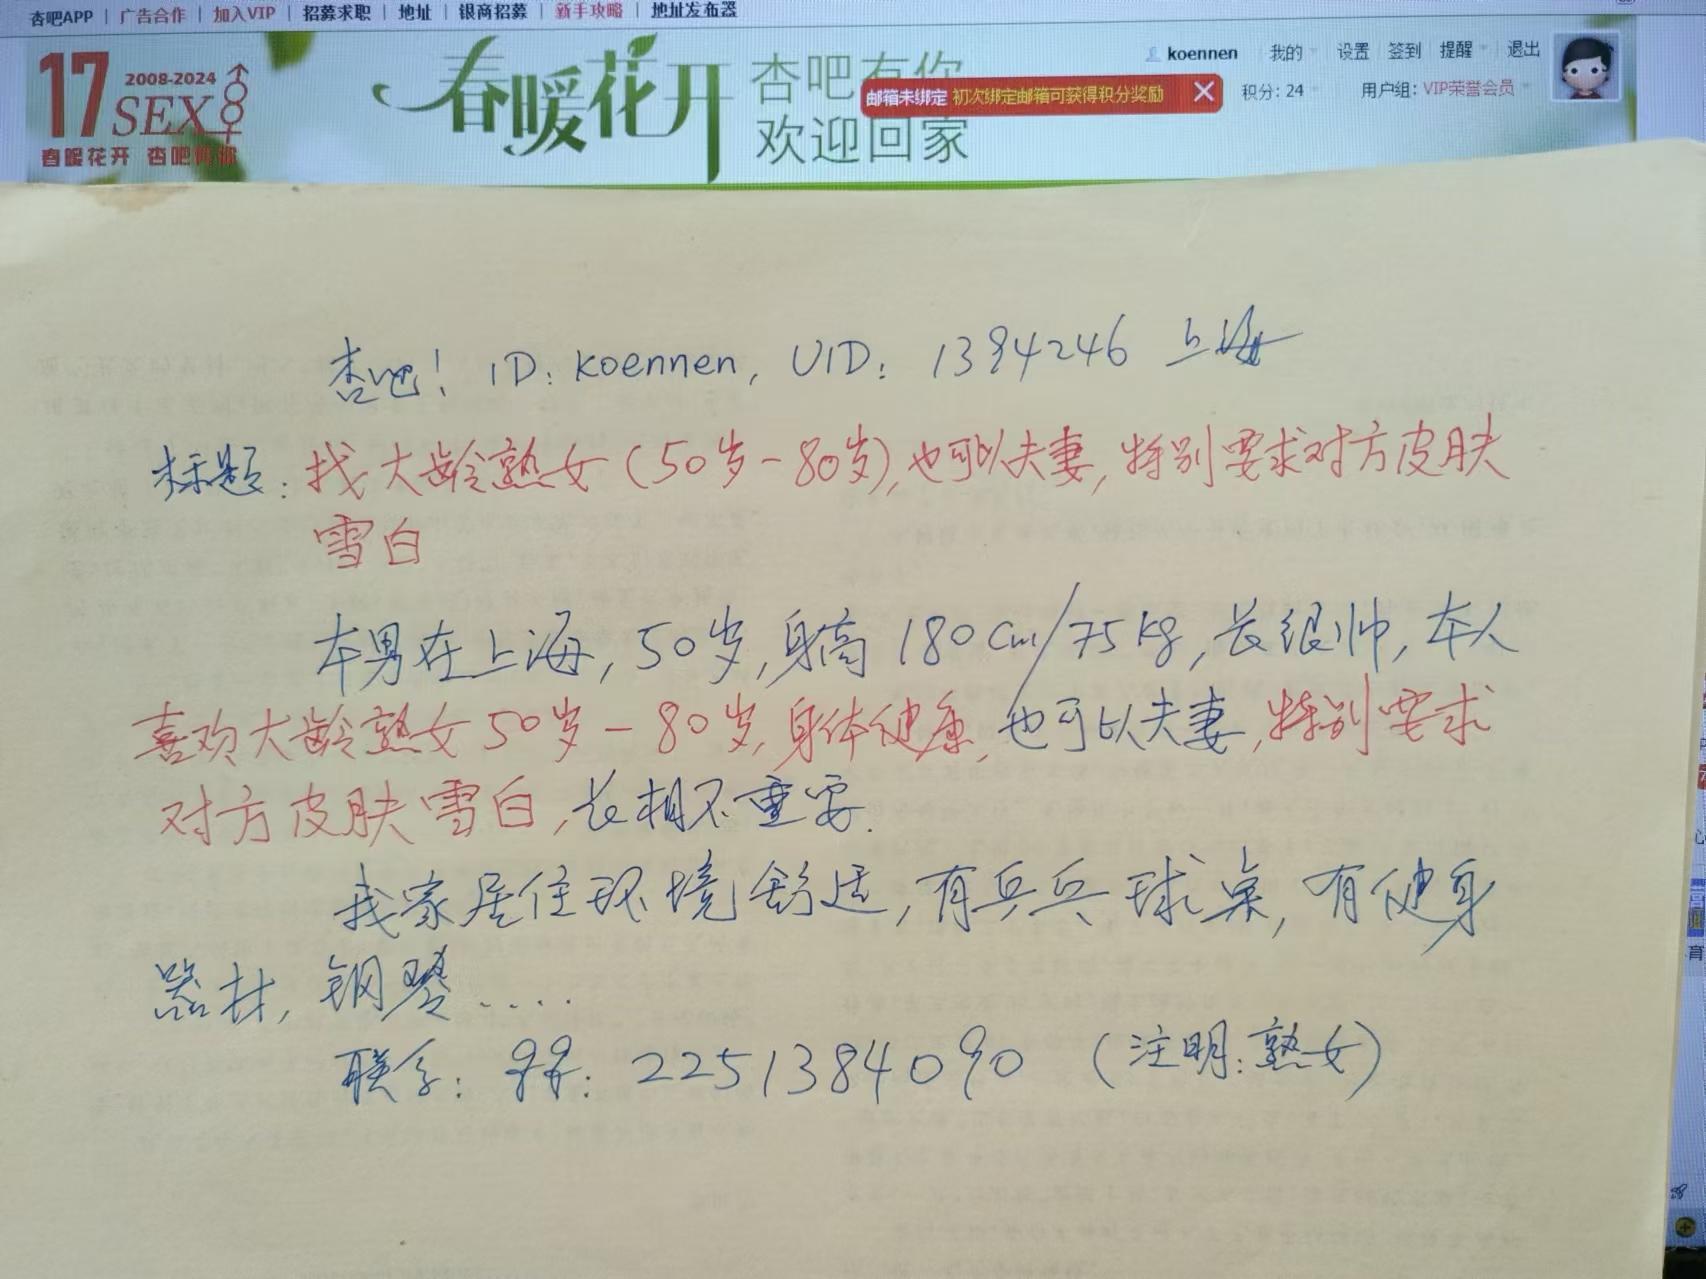 杏吧APP | 广告合作 | 加入VIP | 招募求职 | 地址 | 银商招募 | 新手攻略 | 地址发布器
17
2008-2024
SEX
春暖花开 杏吧有你
春暖花开
杏吧有你
欢迎回家
koennen 我的 设置 签到 提醒 退出
邮箱未绑定 初次绑定邮箱可获得积分奖励
积分: 24 用户组: VIP荣誉会员
杏吧! ID: koennen, UID: 1394246 上海
标题: 找大龄熟女(50岁-80岁),也可以夫妻,特别要求对方皮肤
雪白
本男在上海, 50岁, 身高180cm/75kg, 长很帅, 本人
喜欢大龄熟女50岁-80岁,身体健康,也可以夫妻,特别要求
对方皮肤雪白,长相不重要.
我家居住环境舒适,有乒乓球桌,有健身
器材, 钢琴.....
联系: qq: 2251384090 (注明:熟女)